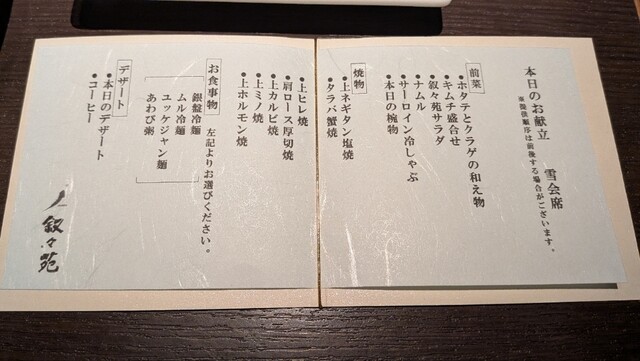 本日のお献立　雪会席
※提供順序は前後する場合がございます。
前菜
●ホタテとクラゲの和え物
●キムチ盛合せ
●叙々苑サラダ
●ナムル
●サーロイン冷しゃぶ
●本日の椀物
焼物
●上ネギタン塩焼
●タラバ蟹焼
●上ヒレ焼
●肩ロース厚切焼
●上カルビ焼
●上ミノ焼
●上ホルモン焼
お食事物　左記よりお選びください。
銀盤冷麺
ムル冷麺
ユッケジャン麺
あわび粥
デザート
●本日のデザート
●コーヒー
叙々苑